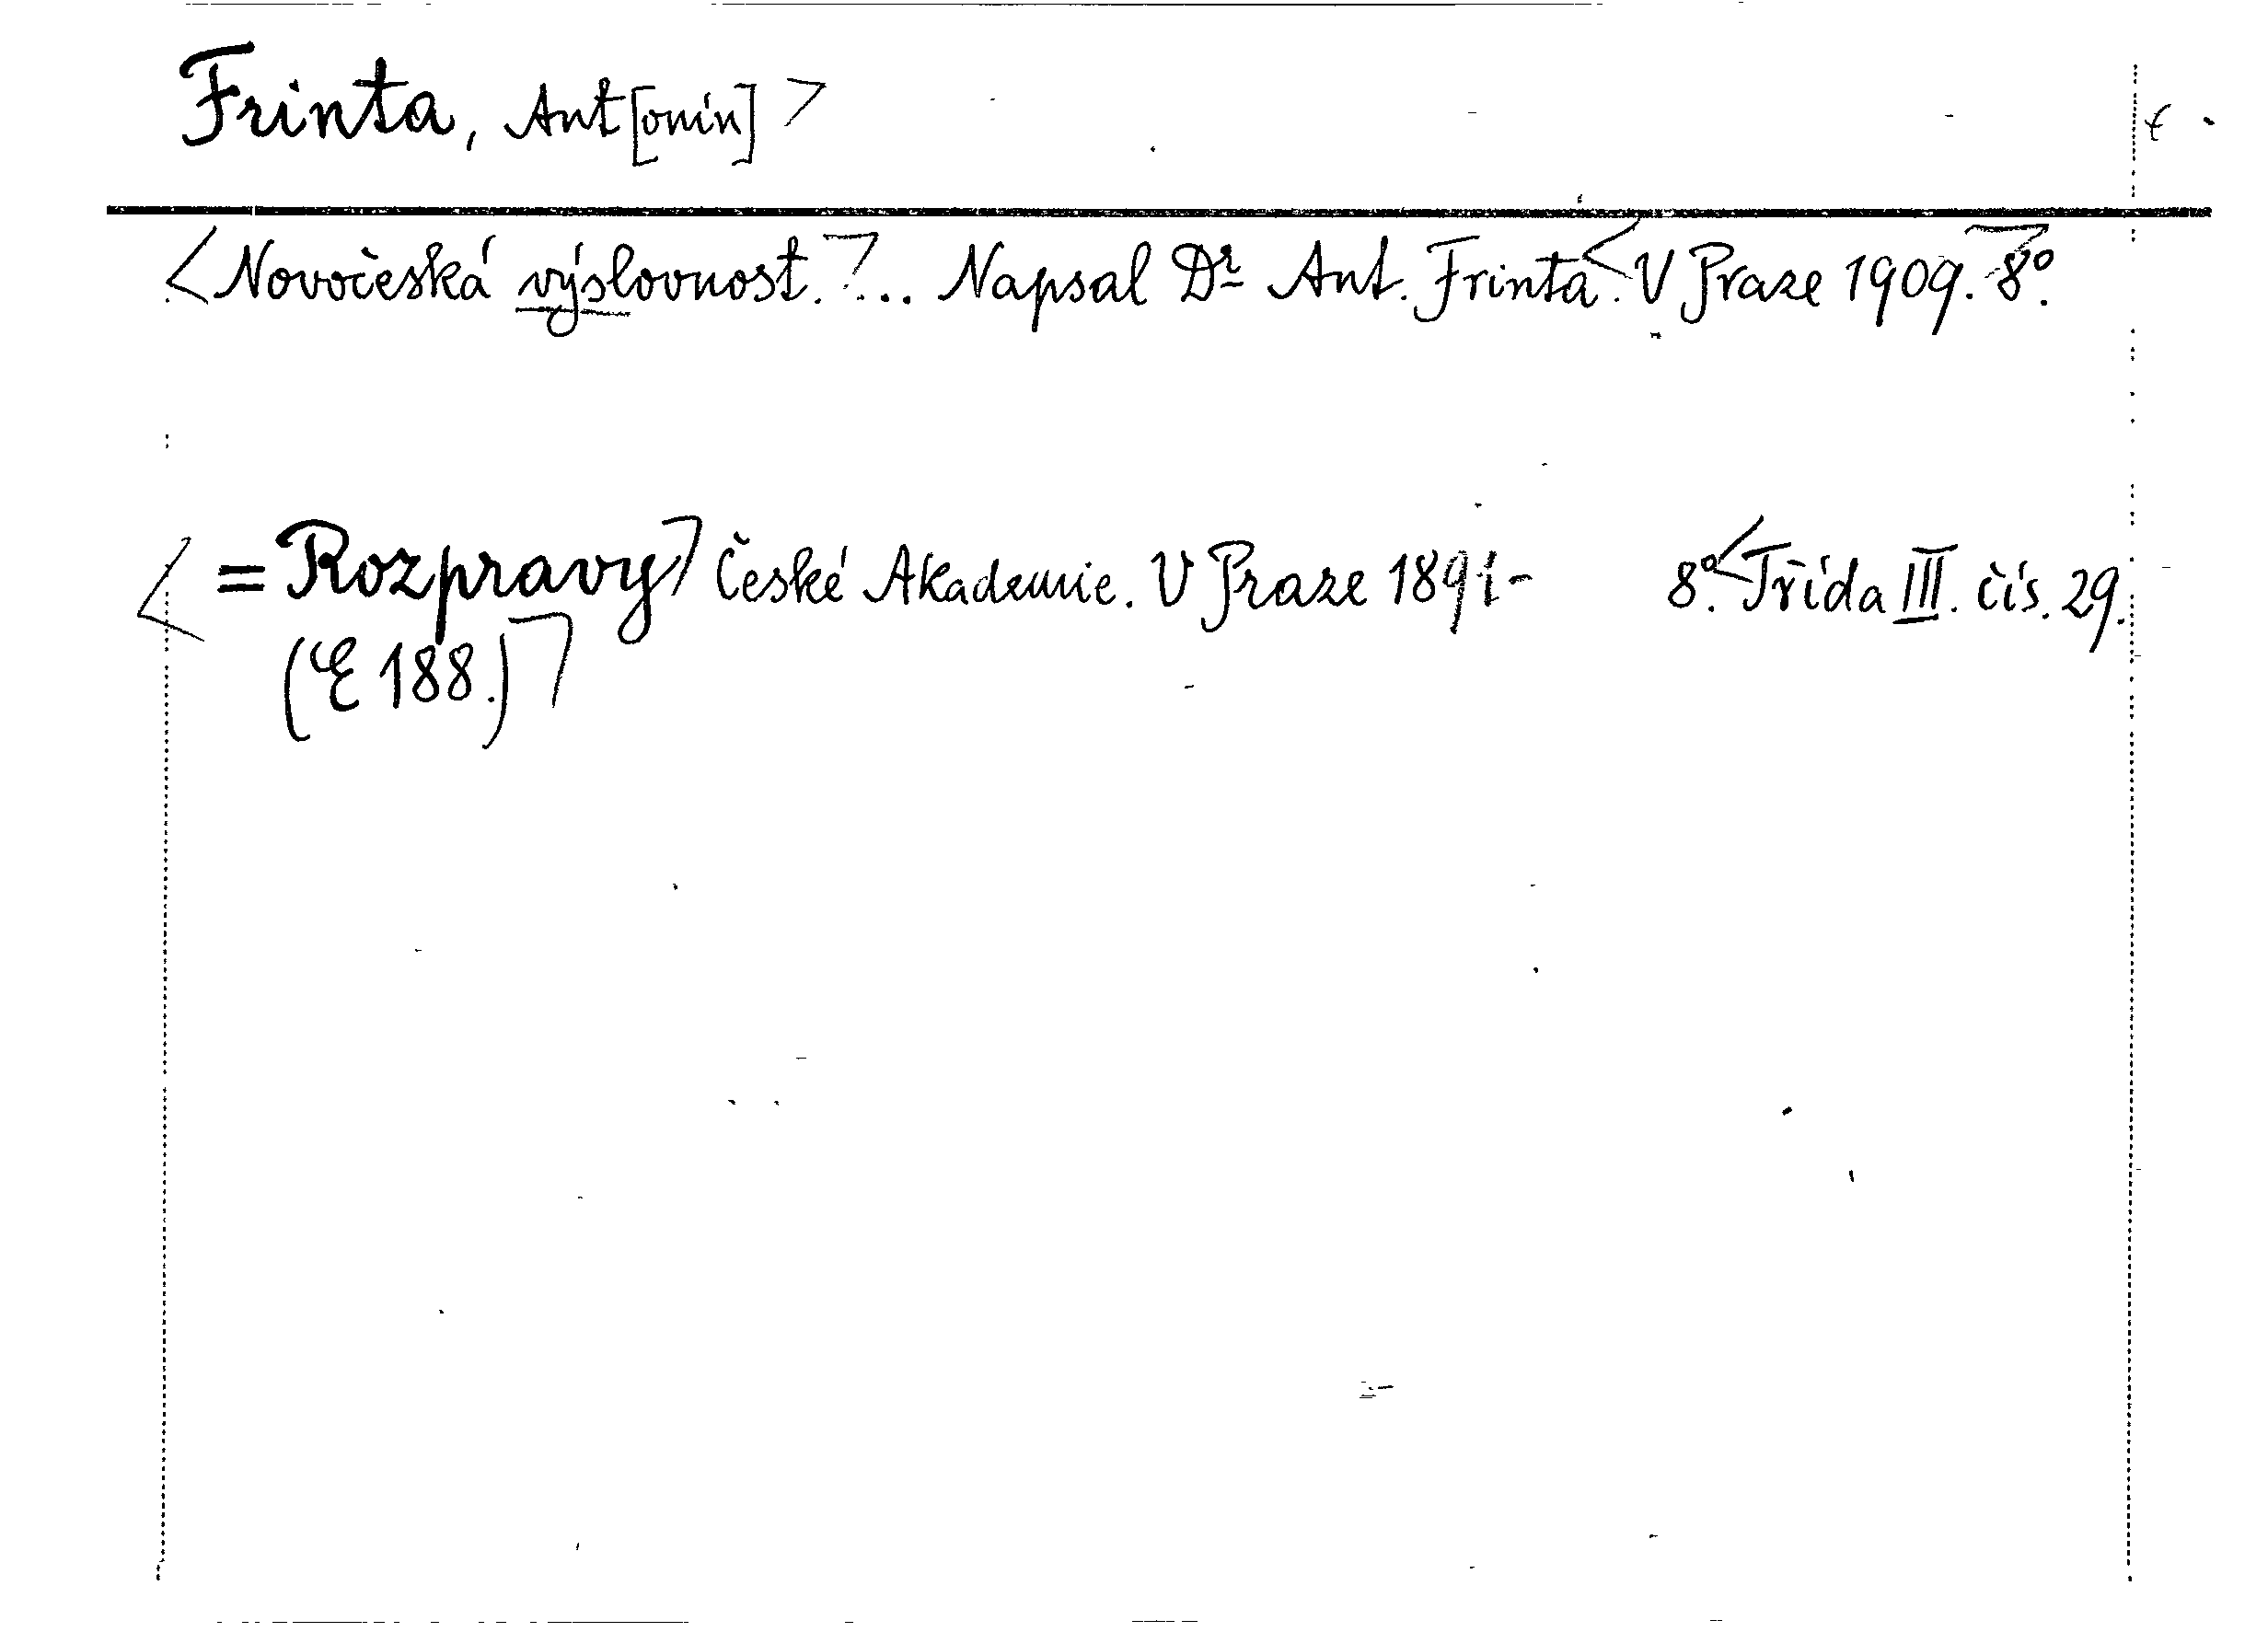 Frinta, Ant[onín]
Novočeská výslovnost. ... Napsal Dr. Ant. Frinta. V Praze 1909. 8°.
= Rozpravy České Akademie. V Praze 1891- 8°. Třída III. čís. 29.
(E 188.)